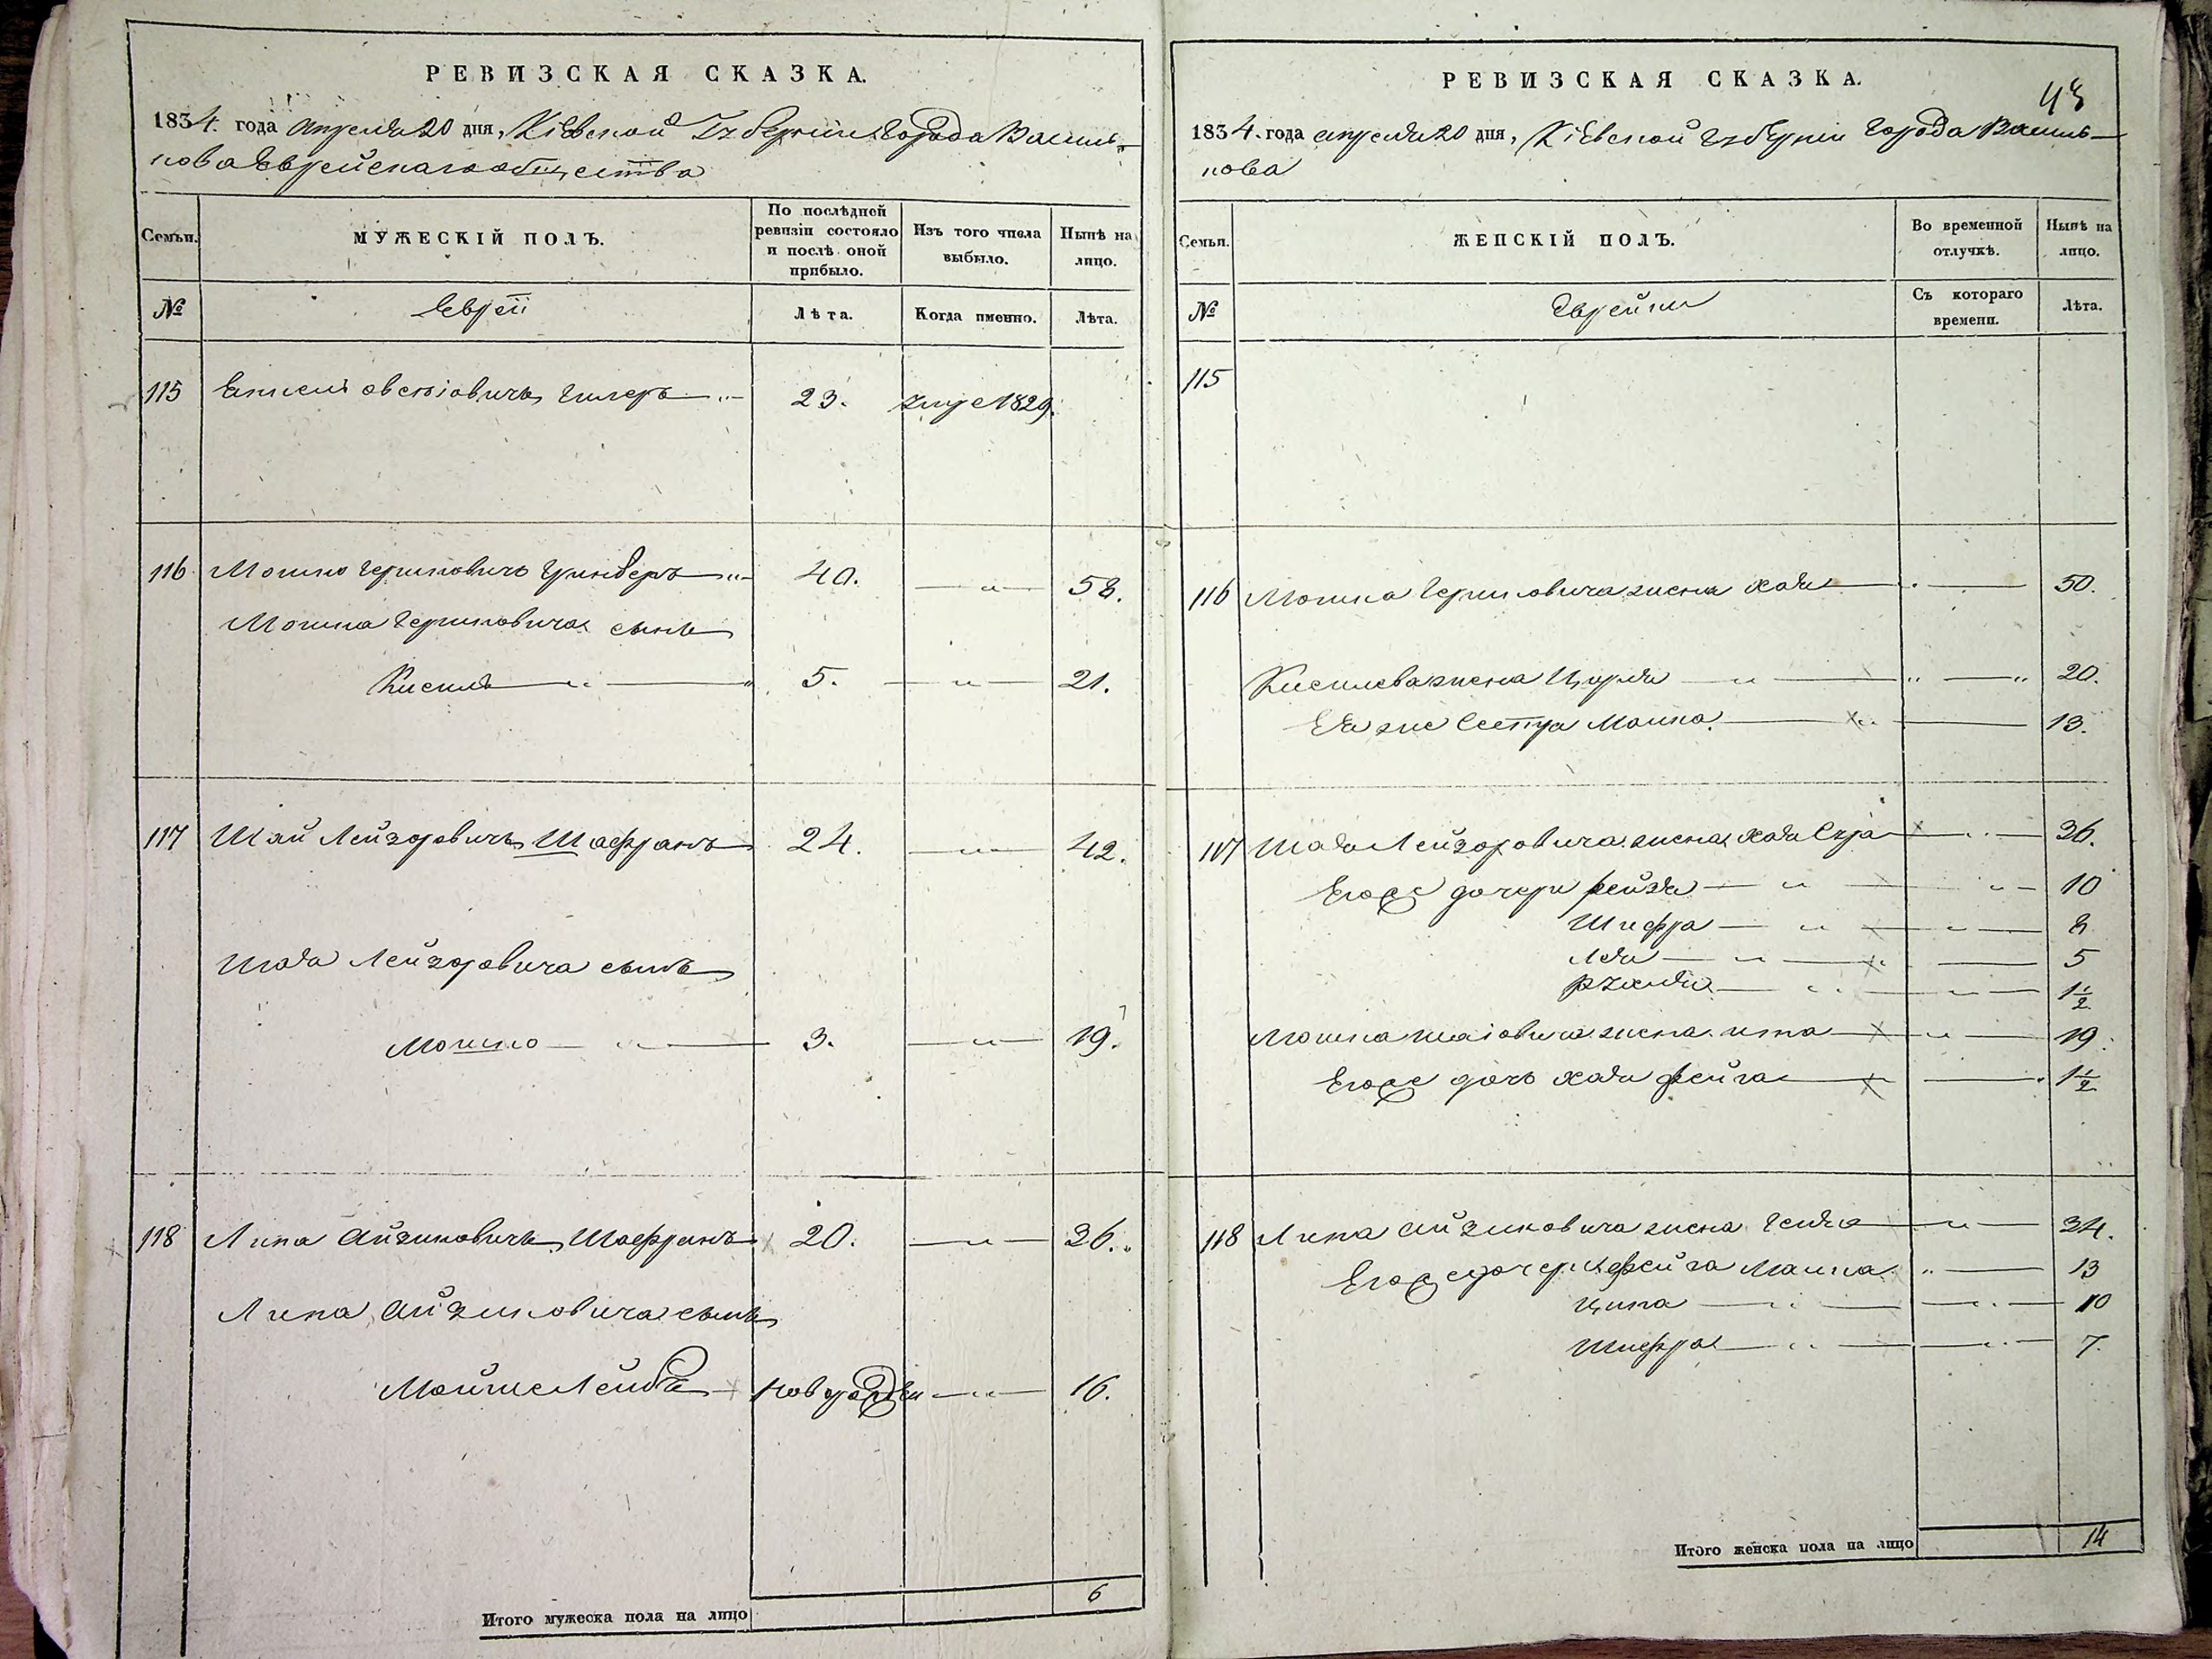 РЕВИЗСКАЯ СКАЗКА.
1834. года апреля 20 дня, Кіевской Губерніи Города Василь-
кова Еврейскаго общества
Семьи.
МУЖЕСКІЙ ПОЛЪ.
По послѣдней ревизіи состояло и послѣ оной прибыло.
Изъ того числа выбыло.
Нынѣ на лицо.
№
Евреи
Лѣта.
Когда именно.
Лѣта.
115 23. умре 1829.
116 Мошко Гершковичъ 40. — „ — 58.
Мошка Гершковича сынъ
Кисиль — „ — 5. — „ — 21.
117 Шай Лейзоровичъ Шафранъ 24. — „ — 42.
Шаи Лейзоровича сынъ
Мошко — „ — 3. — „ — 19.
118 Липа Айзиковичъ Шафранъ 20. — „ — 36.
Липа Айзиковича сынъ
Мойше Лейба новорожден — „ — 16.
6
Итого мужеска пола на лицо
РЕВИЗСКАЯ СКАЗКА.
43
1834. года апреля 20 дня, Кіевской Губерніи Города Василь-
кова
Семьи.
ЖЕНСКІЙ ПОЛЪ.
Во временной отлучкѣ.
Нынѣ на лицо.
№
Еврейки
Съ котораго времени.
Лѣта.
115
116 Мошка Гершковича жена Хая — 50.
Кисилева жена Цирля — „ — 20.
Ея же Сестра Малка — 13.
117 Шаи Лейзоровича жена Хая Сура — 36.
Егоже дочери Рейзя — „ — 10
Шифра — „ — 8
Лея — „ — 5
Рухля — „ — 1½
Мошка Шаіовича жена Ита — 19
Егоже дочь Хая Фейга — 1½
118 Липа Айзиковича жена — „ — 34.
Егоже дочери Фейга Малка „ — 13
Ципа — „ — 10
Шифра — „ — 7.
Итого женска пола на лицо
14